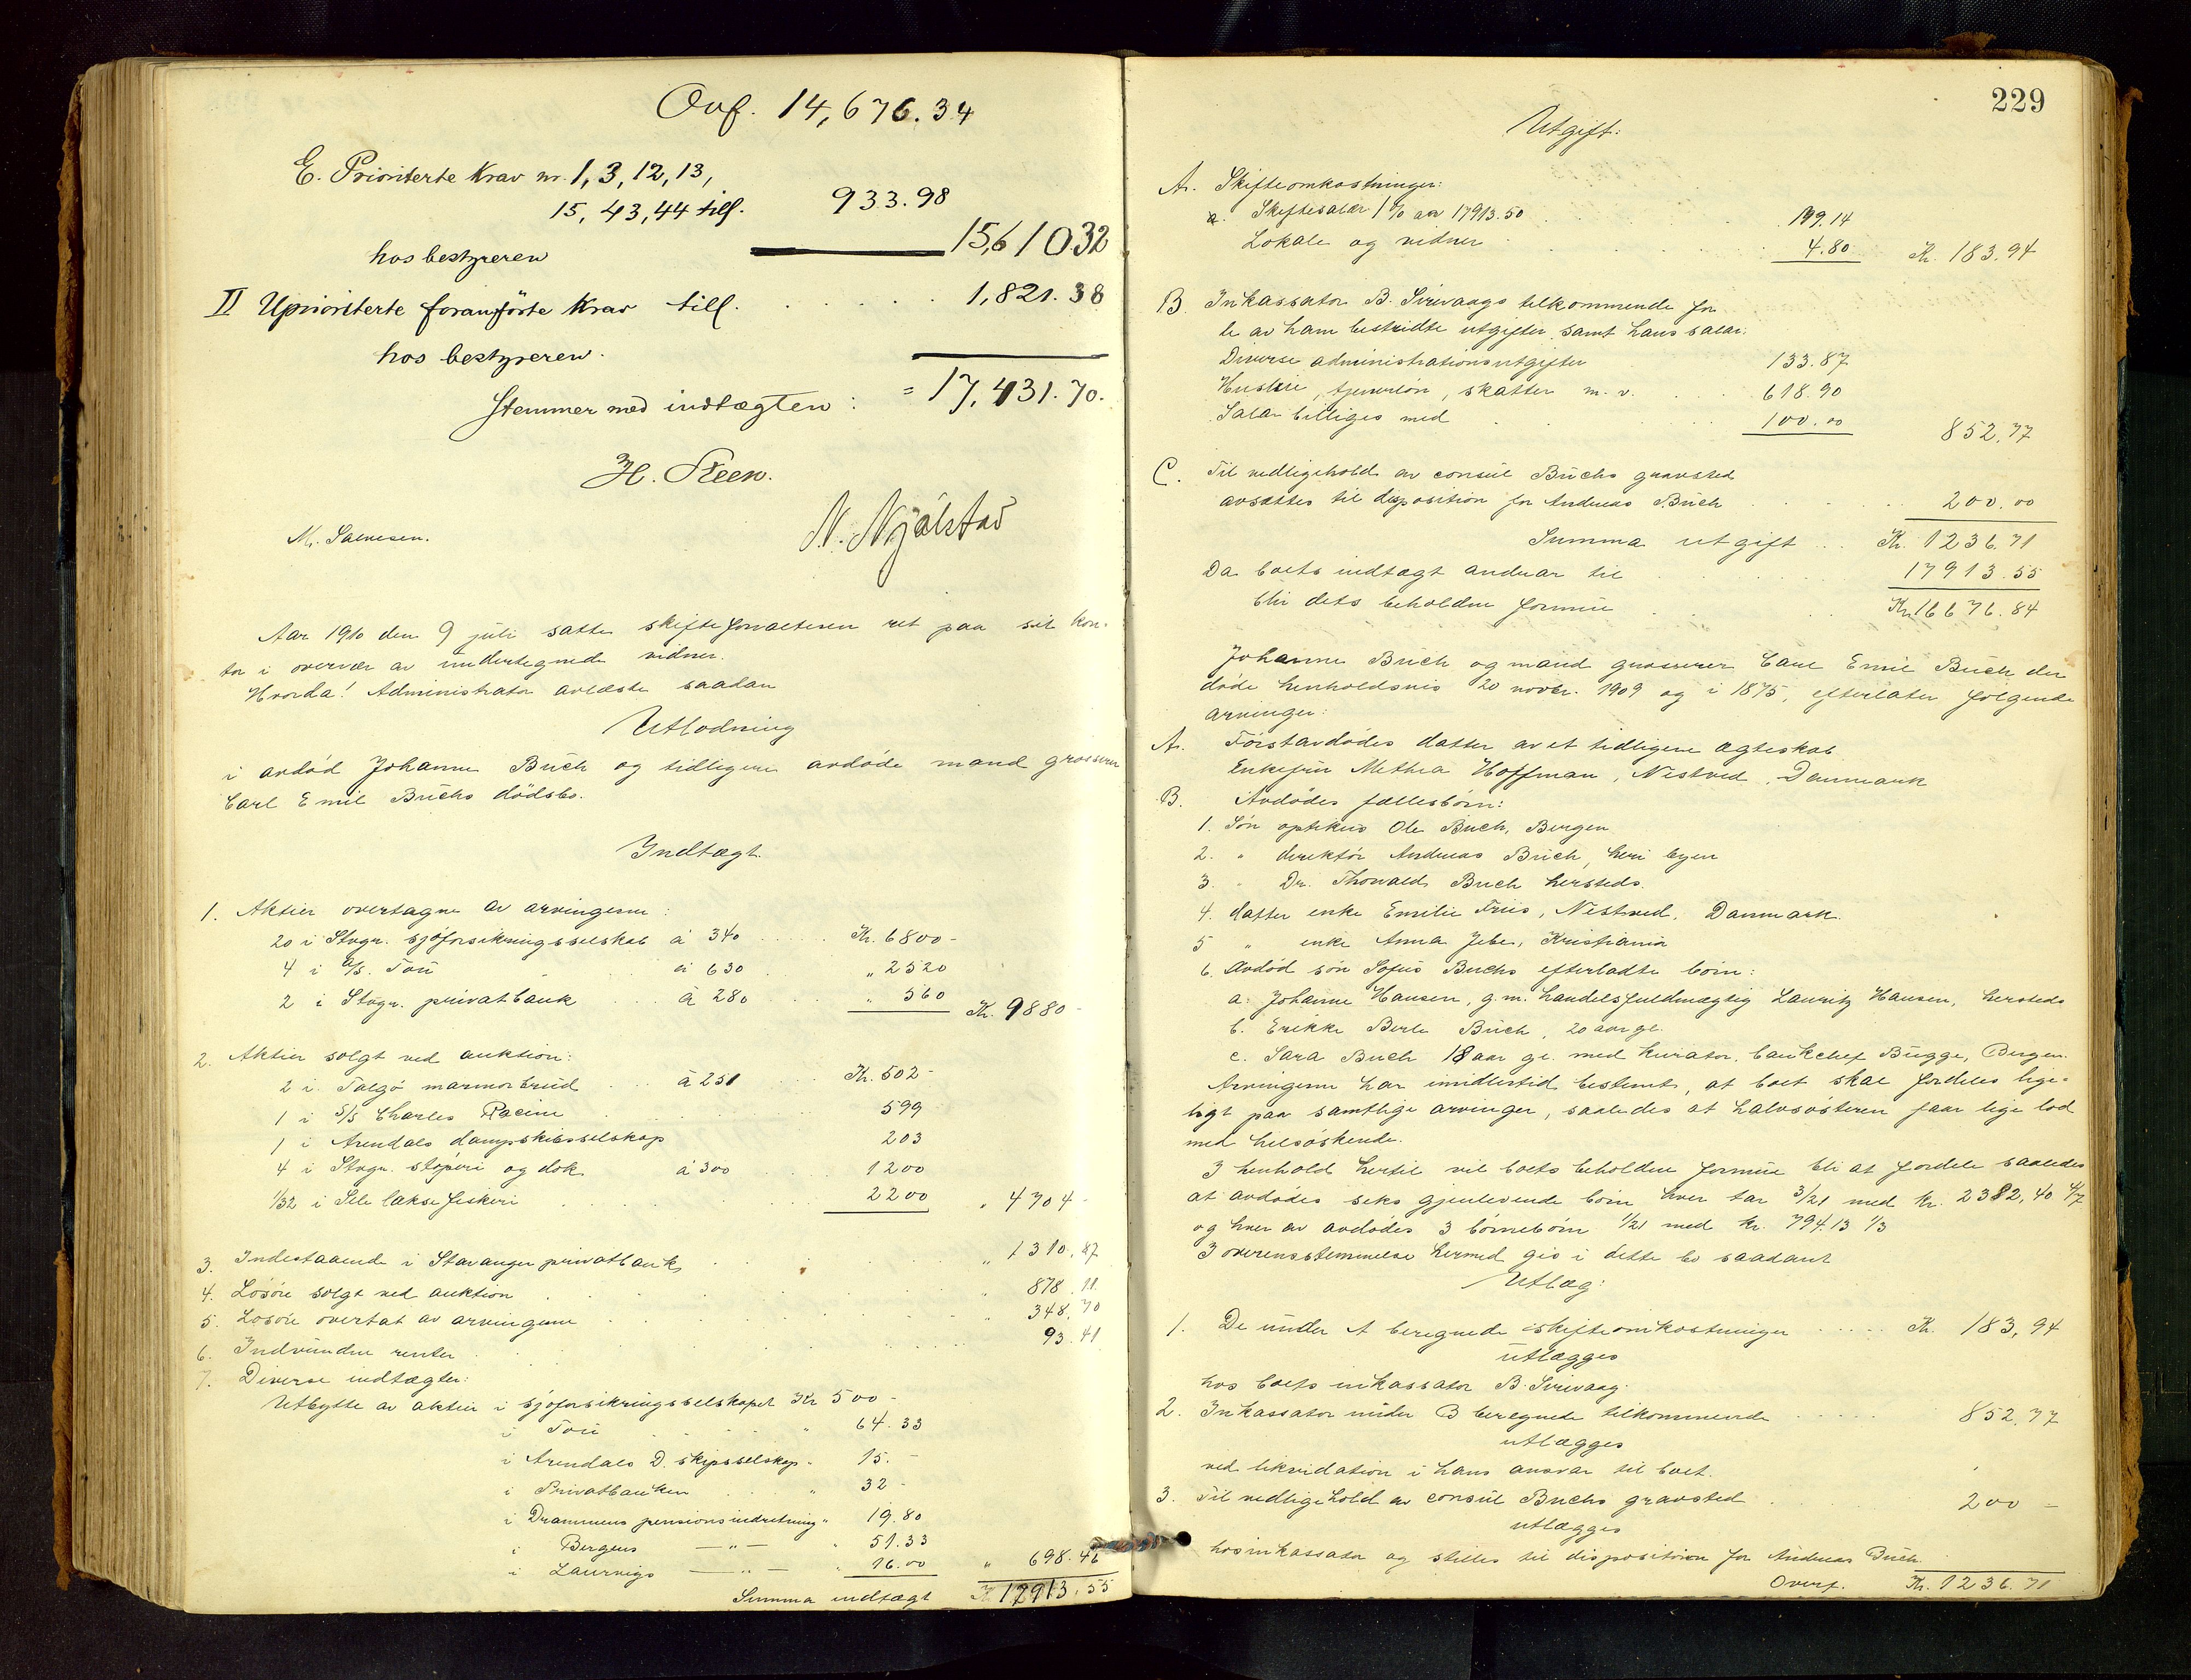 Ovf. 14,676.34
E. Prioriterte Krav nr. 1, 3, 12, 13,
15, 43, 44 till. 933.98
hos bestyreren 15,610.32
II Uprioriterte foranførte Krav till. 1,821.38
hos bestyreren.
Stemmer med indtægten: = 17,431.70.
H. Steen.
M. Salvesen. N. Njålstad
Aar 1910 den 9 juli sattes skifteforvalteren ret paa sit kon-
tor i overvær av undertegnede vidner.
Hvorda! Administrator avlæste saadan
Utlodning
i avdød Johanne Buch og tidligere avdøde mand grosserer
Carl Emil Buchs dødsbo.
Indtægt.
1. Aktier overtagne av arvingerne:
20 i Stvgr. sjøforsikringsselskab à 340 Kr. 6800-
4 i A/S. Tou à 630 " 2520
2 i Stvgr. privatbank à 280 " 560 Kr. 9880-
2. Aktier solgt ved auktion:
2 i Talgø marmorbrud à 251 Kr. 502-
1 i S/S Charles Racine 599
1 i Arendals dampskibsselskap 203
4 i Stvgr. støperi og dok à 300 1200
1/32 i Sele laksefiskeri 2200 " 4704-
3. Indestaaende i Stavanger privatbank " 1310.87
4. Løsøre solgt ved auktion " 878.11
5. Løsøre overtat av arvingerne " 348.70
6. Indvundne renter 93.41
7. Diverse indtægter:
Utbytte av aktier i sjøforsikringsselskapet Kr 500-
i Tou " 64.33
i Arendals D. skipsselskap " 15.-
i Privatbanken " 32-
i Drammens pensionsindretning " 19.80
i Bergens —"— " 51.33
i Laurvigs —"— " 16.00 " 698.46
Summa indtægt K 17913.55
229
Utgift:
A. Skifteomkostninger:
a. Skiftesalær 1% av 17913.50 179.14
Lokale og vidner 4.80 Kr. 183.94
B. Inkassator B. Sirevaags tilkommende for
de av ham bestridte utgifter samt hans salær:
Diverse administrationsutgifter 133.87
Husleie, tjenerløn, skatter m.v. 618.90
Salær billiges med 100.00 852.77
C. Til vedligehold av consul Buchs gravsted
avsættes til disposition for Andreas Buch 200.00
Summa utgift Kr. 1236.71
Da boets indtægt andrar til 17913.55
blir dets beholdne formue Kr. 16676.84
Johanne Buch og mand grosserer Carl Emil Buch der
døde henholdsvis 20 novbr. 1909 og i 1875, efterlater følgende
arvinger:
A. Førstavdødes datter av et tidligere ægteskab
Enkefru Methea Hoffman, Nestved, Danmark
B. Avdødes fællesbørn:
1. Søn optikus Ole Buch, Bergen
2. " direktør Andreas Buch, her i byen
3. " Dr. Thorvald Buch hersteds.
4. datter enke Emilie Friis, Nestved, Danmark.
5 " enke Anna Jebe, Kristiania
6. Avdød søn Sofus Buchs efterladte børn:
a. Johanne Hansen, g.m. handelsfuldmægtig Lauritz Hansen, hersteds
b. Erikke Berle Buch, 20 aar gl.
c. Sara Buch 18 aar gl. med kurator, bankchef Bugge, Bergen.
Arvingerne har imidlertid bestemt, at boet skal fordeles lige-
ligt paa samtlige arvinger, saaledes at halvsøsteren faar lige lod
med helsøskende.
I henhold hertil vil boets beholdne formue bli at fordele saaledes
at avdødes seks gjenlevende børn hver tar 3/21 med kr. 2382,40 4/7
og hver av avdødes 3 børnebørn 1/21 med kr. 794.13 1/3
I overensstemmelse hermed gis i dette bo saadant
Utlæg:
1. De under A beregnede skifteomkostninger Kr. 183,94
utlægges
hos boets inkassator B. Sirevaag.
2. Inkassator under B beregnede tilkommende 852.77
utlægges
ved likvidation i hans ansvar til boet.
3. Til vedligehold av consul Buchs gravsted 200-
utlægges
hos inkassator og stilles til disposition for Andreas Buch
Overf. Kr. 1236.71